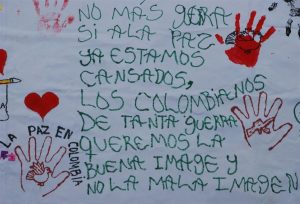 NO MÁS GERRA
SI A LA PAZ
YA ESTAMOS
CANSADOS,
LOS COLOMBIANOS
DE TANTA GUERRA
QUEREMOS LA
BUENA IMAGE Y
NO LA MALA IMAGEN
LA PAZ EN COLOMBIA